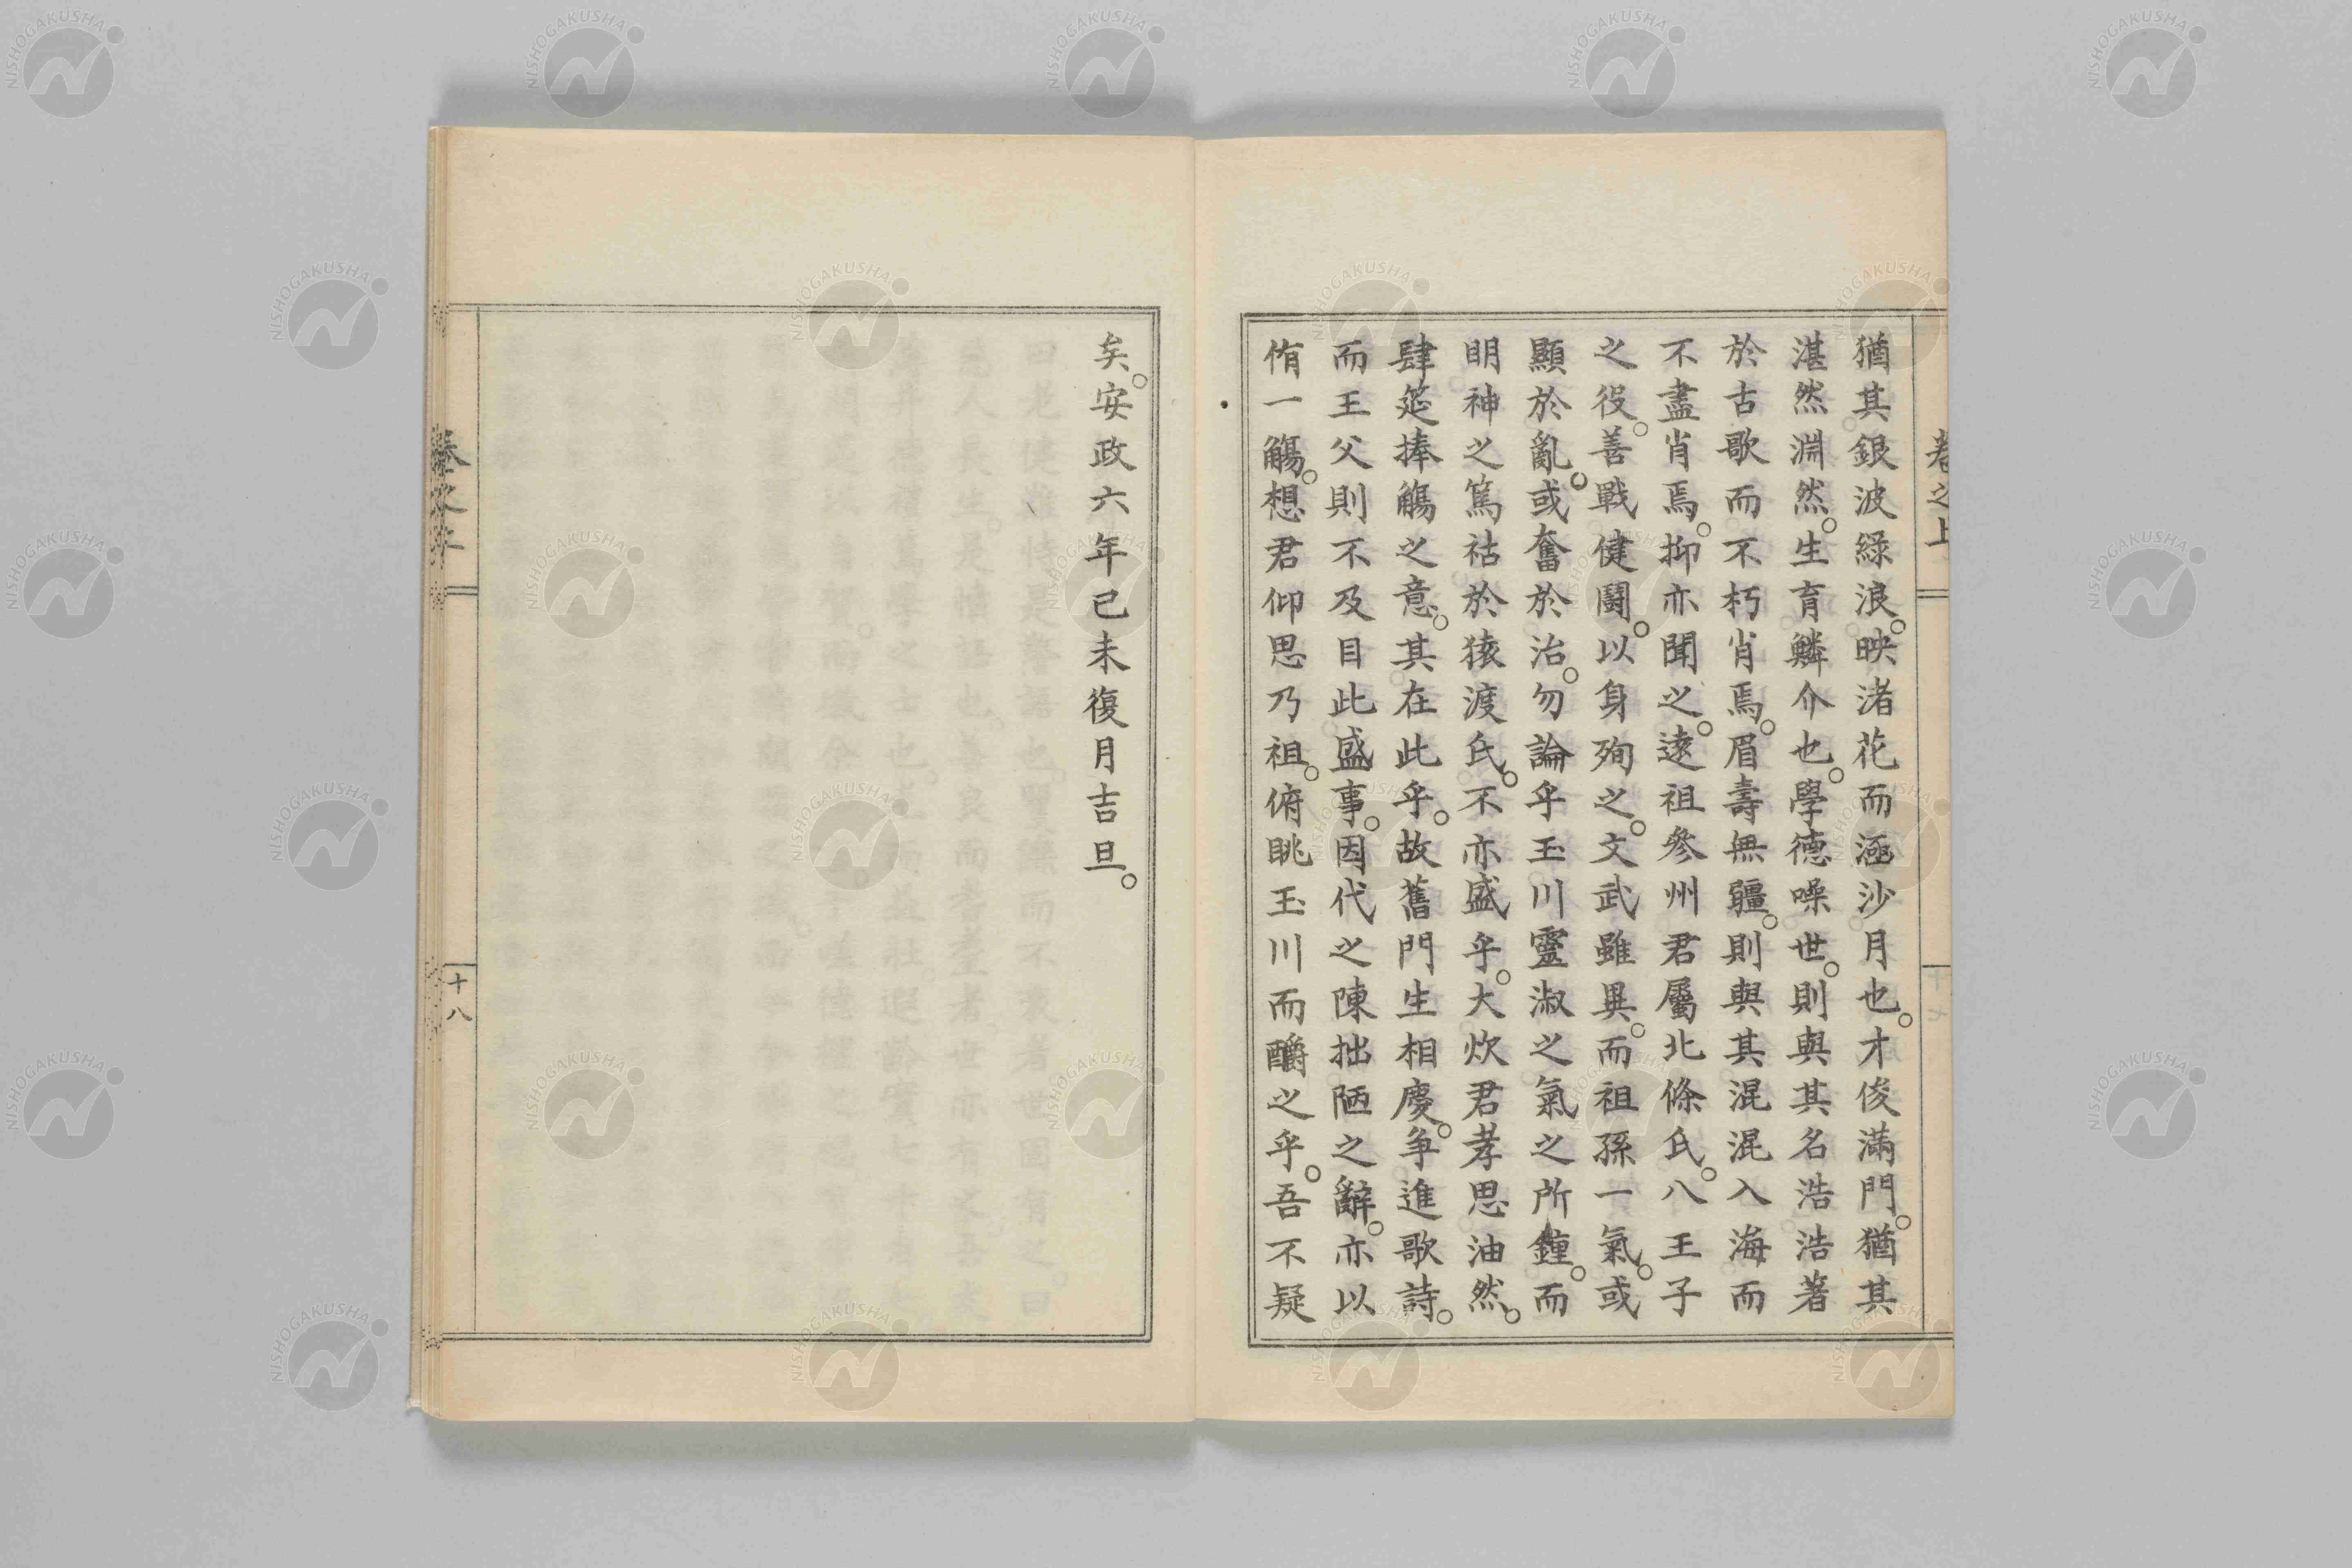 猶其銀波綠浪。映渚花而涵沙月也。才俊滿門。猶其
湛然淵然。生育鱗介也。學德噪世。則與其名浩浩著
於古歌而不朽肖焉。眉壽無疆。則與其混混入海而
不盡肖焉。抑亦聞之。遠祖參州君屬北條氏。八王子
之役。善戰健鬪。以身殉之。文武雖異。而祖孫一氣。或
顯於亂。或奮於治。勿論乎玉川靈淑之氣之所鍾。而
明神之篤祜於猿渡氏。不亦盛乎。大炊君孝思油然。
肆筵捧觴之意。其在此乎。故舊門生相慶。爭進歌詩。
而王父則不及目此盛事。因代之陳拙陋之辭。亦以
侑一觴。想君仰思乃祖。俯眺玉川而釂之乎。吾不疑
矣。安政六年己未復月吉旦。
卷之上
十七
十八
NISHOGAKUSHA